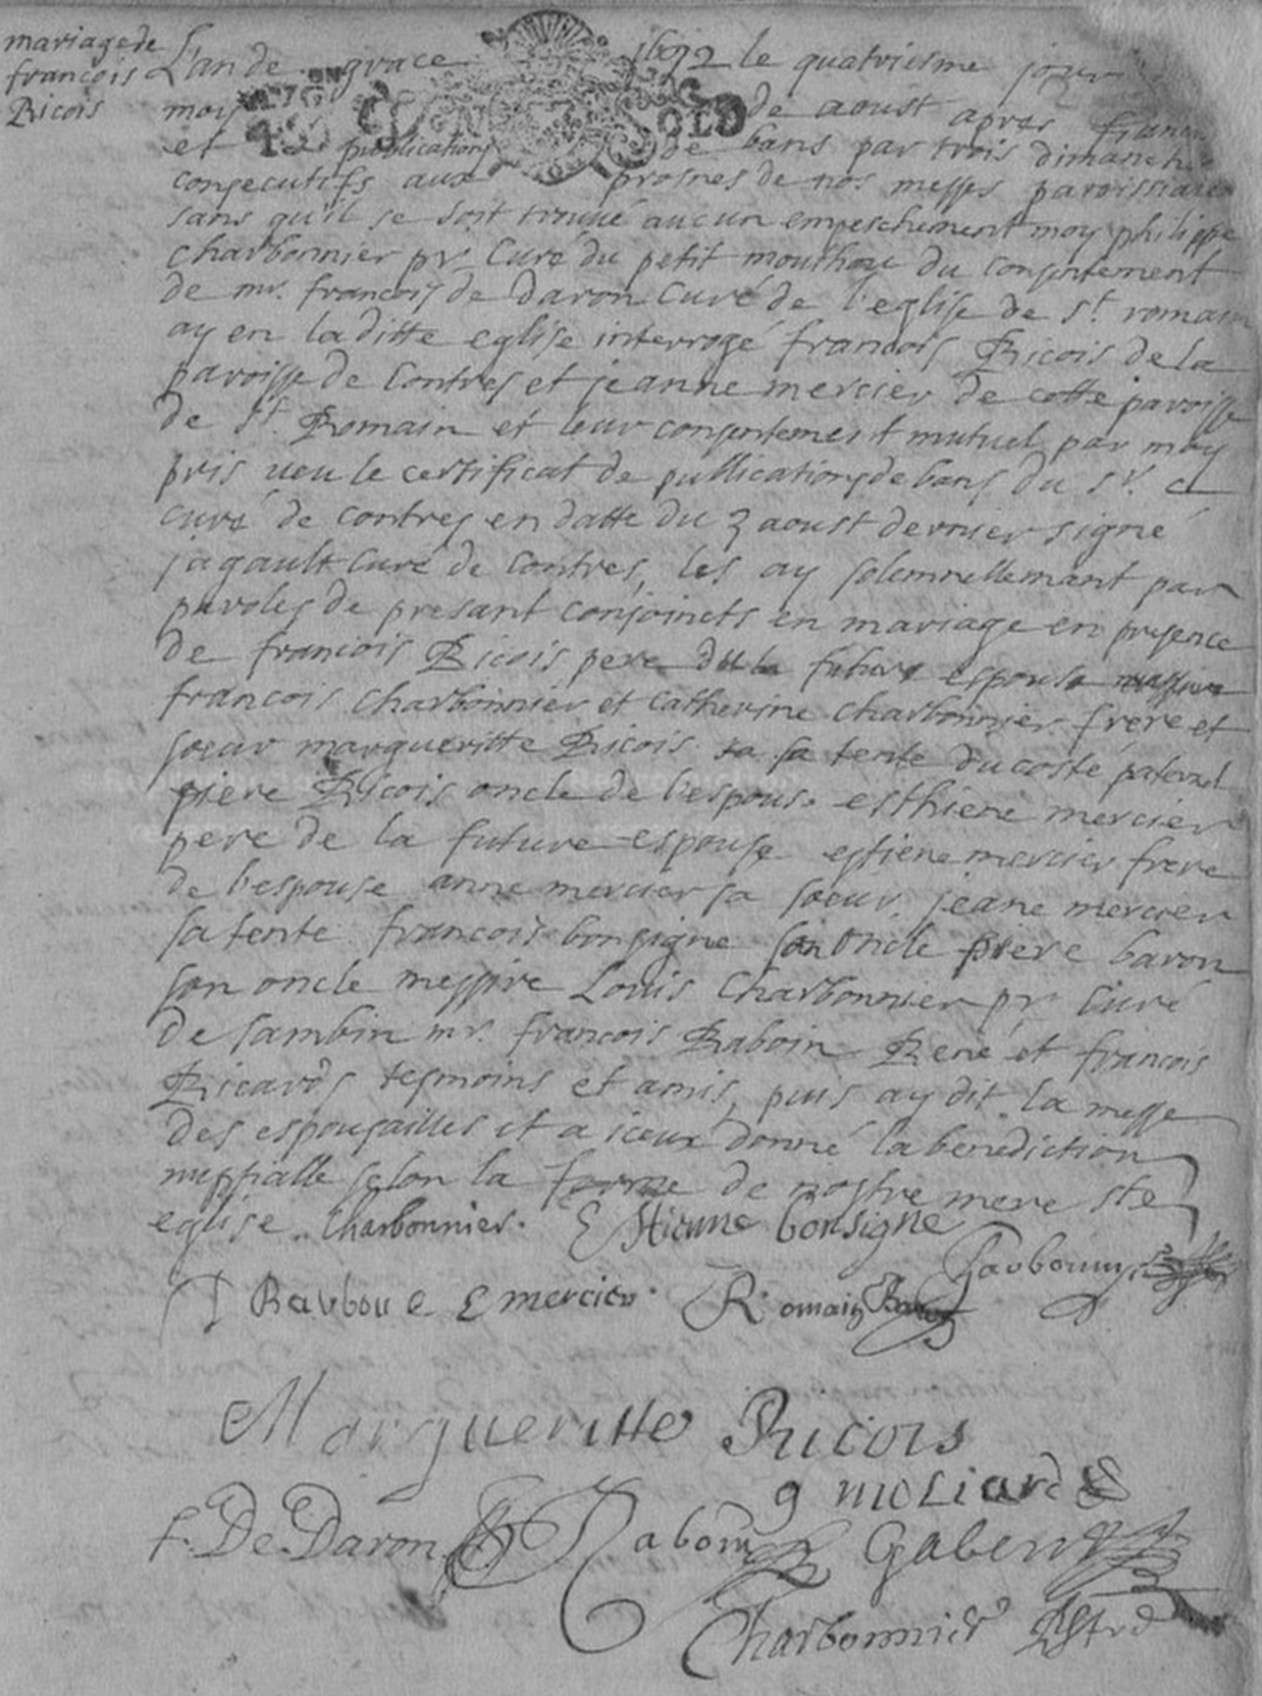 mariage de
francois
Ricois
L'an de grace 1692 le quatriesme jour
mois de aoust apres
et publications de bans par trois dimanches
consecutifs aux prosnes de nos messes paroissiales
sans qu'il se soit trouué aucun empeschement moy philippe
charbonnier pr curé du petit mouthou du consentement
de mr. francois de Daron Curé de l'eglise de st. romain
ay en laditte eglise interrogé francois Ricois de la
paroisse de Contres et jeanne mercier de cette paroisse
de st. Romain et leur consentement mutuel par moy
pris ueu le certificat de publications de bans du sr.
curé de contres en datte du 3 aoust dernier signé
jagault curé de Contres, les ay solemnellemant par
paroles de presant conjoincts en mariage en presence
de francois Ricois pere future espouse
francois Charbonnier et Catherine charbonnier frere et
soeur margueritte Ricois sa tente du costé paternel
piere Ricois oncle de l'espouse esthiene mercier
pere de la future espouse estiene mercier frere
de l'espouse anne mercier sa soeur jeane mercier
sa tente francois bonsigne son oncle piere baron
son oncle messire Louis Charbonnier pr curé
de sambin mr. francois Raboin René et francois
Ricards tesmoins et amis, puis ay dit la messe
des espousailles et a iceux donné la benediction
nuptialle selon la forme de nostre mere ste
eglise. Charbonnier. Estienne bonsigne
E mercier. Romain
Margueritte Ricois
moliard
F. De Daron Raboin
Charbonnier